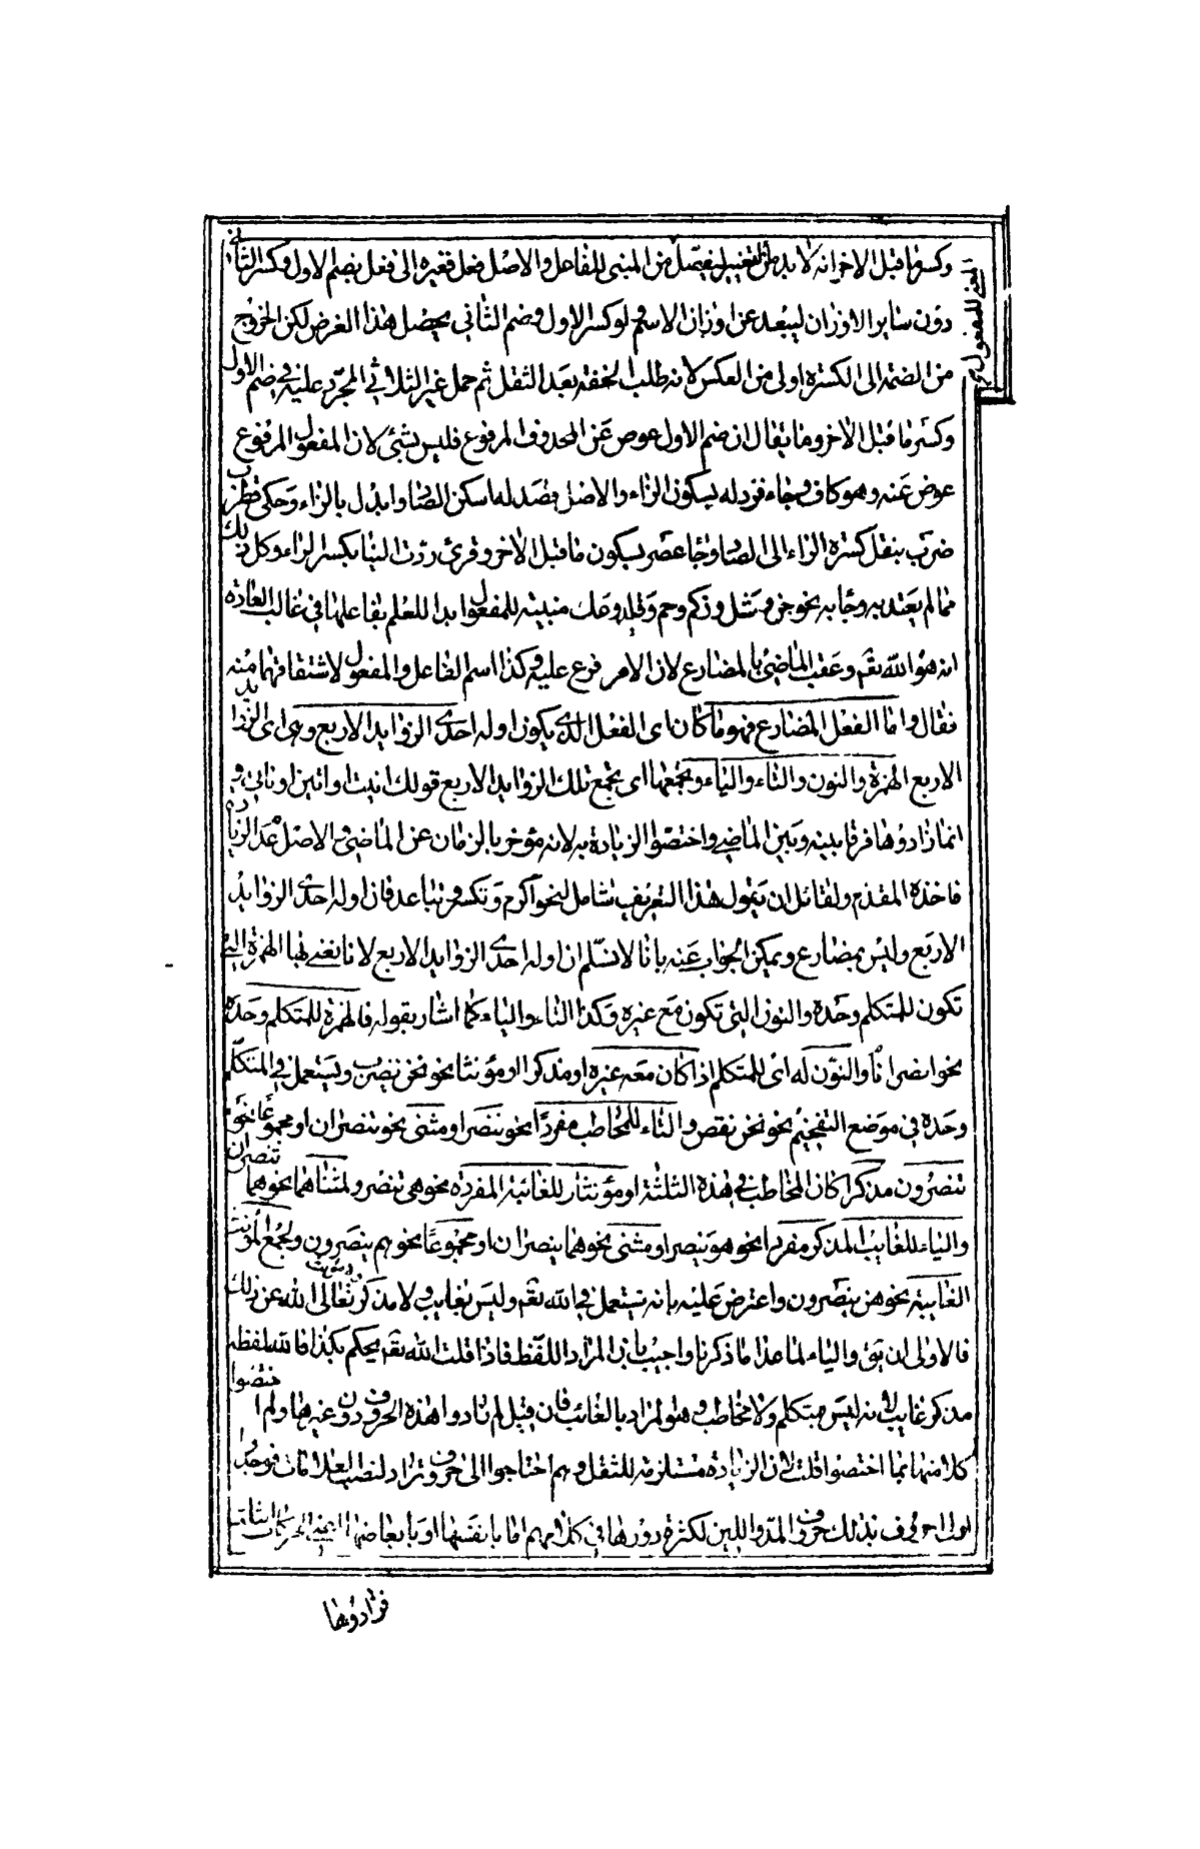 وكسر ما قبل الاخر انه لا بد من التغيير ليفصل من المبنى للفاعل والاصل فعل فغيره الى فعل بضم الاول وكسر الثانى
المبنى للمفعول
دون ساير الاوزان ليبعد عن اوزان الاسم ولو كسر الاول وضم الثاني يحصل هذا الغرض لكن الخروج
من الضمة الى الكسرة اولى من العكس لانه طلب الخفة بعد الثقل ثم حمل غير الثلاثي المجرد عليه في ضم الاول
وكسر ما قبل الاخر وما يقال ان ضم الاول عوض عن المحذوف المرفوع فليس بشئ لان المفعول المرفوع
عوض عنه وهو كاف وجاء فزد له بسكون الزاء والاصل فصد له اسكن الصاد وابدل بالزاء وحكى قطرب
ضرب بنقل كسرة الراء الى الضاد وجاء عصر بسكون ما قبل الاخر وقرئ ردت الينا بكسر الراء وكل ذلك
مما لم يعتد به وجاء به نحو جن وسل وزكم وحم وفلج ووعك مبنية للمفعول ابدا للعلم بفاعلها في غالب العادة
انه هو الله تعم وعقب الماضى بالمضارع لان الامر فرع عليه وكذا اسم الفاعل والمفعول لاشتقاقهما منه
فقال واما الفعل المضارع فهو ما كان اى الفعل الذى يكون اوله احدى الزوايد الاربع وهى اى الزوايد
الاربع الهمزة والنون والتاء والياء وتجمعها اى تجمع تلك الزوايد الاربع قولك انيت او اتين او ناتي و
انما زادوها فرقا بينه وبين الماضي واختصوا الزيادة به لانه مؤخر بالزمان عن الماضي والاصل عدم الزيادة
فاخذه المقدم ولقائل ان يقول هذا التعريف شامل لنحو اكرم وتكسر وتباعد فان اوله احدى الزوايد
الاربع وليس بمضارع ويمكن الجواب عنه بانا لا نسلم ان اوله احدى الزوايد الاربع لانا نعني بها الهمزة التي
تكون للمتكلم وحده والنون التى تكون مع غيره وكذا التاء والياء كما اشار بقوله فالهمزة للمتكلم وحده
نحو انصر انا والنون له اى للمتكلم اذا كان معه غيره او مذكرا او مؤنثا نحو نحن ننصر ويستعمل في المتكلم
وحده في موضع التفخيم نحو نحن نقص والتاء للمخاطب مفردا نحو تنصر او مثنى نحو تنصران او مجموعا نحو
تنصرون مذكرا كان المخاطب في هذه الثلثة او مؤنثا وللغائبة المفردة نحو هى تنصر ولمثناهما نحو هما تنصران
والياء للغايب المذكر مفردا نحو هو ينصر او مثنى نحو هما ينصران او مجموعا نحو هم ينصرون ولجمع المؤنث
الغايبة نحو هن ينصرن واعترض عليه بانه يستعمل في الله تعم وليس بغايب ولا مذكر تعالى الله عن ذلك
فالاولى ان يق والياء لما عدا ما ذكرنا واجيب بان المراد اللفظ فاذا قلت الله تعم يحكم بكذا فالله لفظه
مذكر غايب لانه ليس متكلم ولا مخاطب وهو المراد بالغائب فان قيل لم زادوا هذه الحروف دون غيرها ولم اختصوا
كلا منها بما اختصوا قلت لان الزيادة مستلزمة للثقل وهم احتاجوا الى حروف تزاد لنصب العلامات فوجدوا
اولى الحروف بذلك حروف المد واللين لكثرة دورها في كلامهم اما بانفسها او بابعاضها اعنى الحركات الثلث
فزادوها